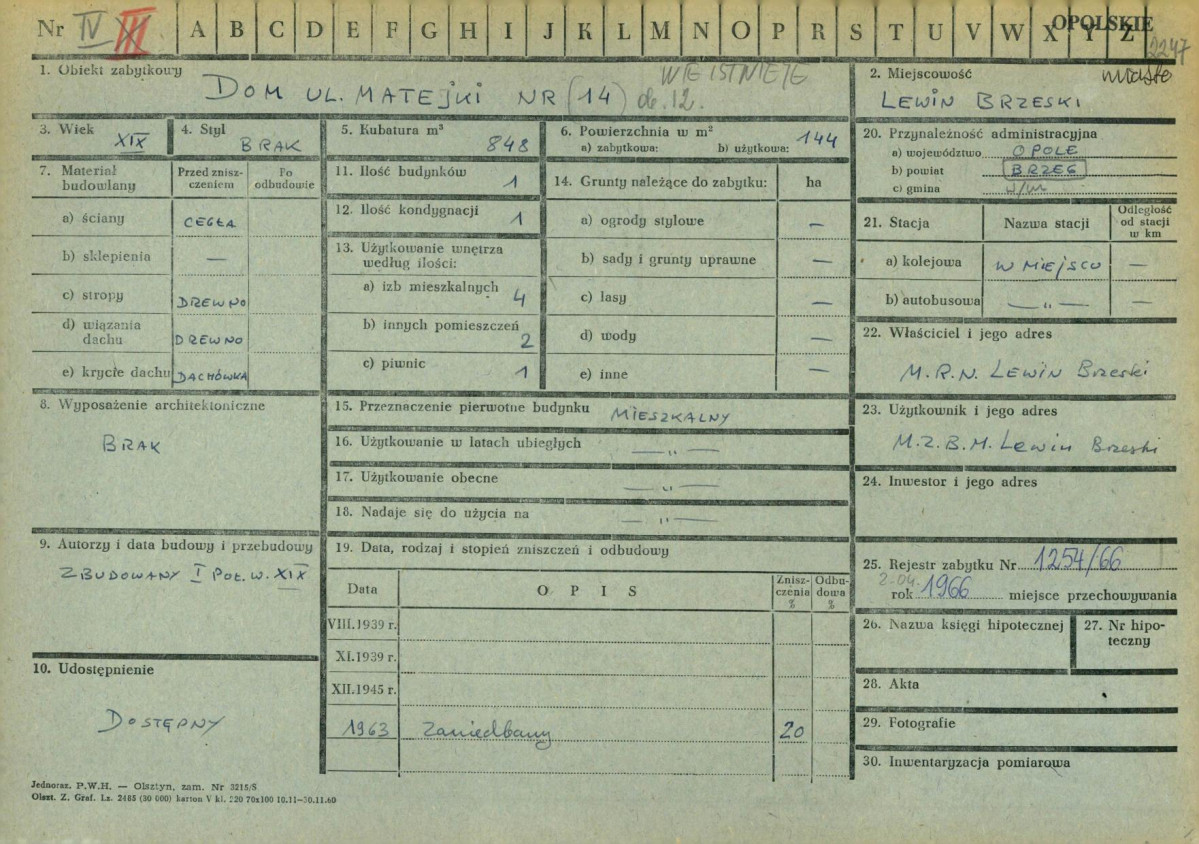 Nr IV III A B C D E F G H I J K L M N O P R S T U V W X Y Z OPOLSKIE
2247
1. Obiekt zabytkowy
DOM UL. MATEJKI NR (14) ob. 12.
NIE ISTNIEJE
2. Miejscowość miasto
LEWIN BRZESKI
3. Wiek XIX
4. Styl BRAK
5. Kubatura m³ 848
6. Powierzchnia w m² 144
a) zabytkowa: b) użytkowa:
20. Przynależność administracyjna
a) województwo OPOLE
b) powiat BRZEG
c) gmina
7. Materiał budowlany
Przed zniszczeniem
Po odbudowie
a) ściany CEGŁA
b) sklepienia —
c) stropy DREWNO
d) wiązania dachu DREWNO
e) krycie dachu DACHÓWKA
11. Ilość budynków 1
12. Ilość kondygnacji 1
13. Użytkowanie wnętrza według ilości:
a) izb mieszkalnych 4
b) innych pomieszczeń 2
c) piwnic 1
14. Grunty należące do zabytku: ha
a) ogrody stylowe —
b) sady i grunty uprawne —
c) lasy —
d) wody —
e) inne —
21. Stacja Nazwa stacji Odległość od stacji w km
a) kolejowa W MIEJSCU —
b) autobusowa — „ — —
22. Właściciel i jego adres
M.R.N. LEWIN Brzeski
8. Wyposażenie architektoniczne
BRAK
15. Przeznaczenie pierwotne budynku MIESZKALNY
16. Użytkowanie w latach ubiegłych — „ —
17. Użytkowanie obecne — „ —
18. Nadaje się do użycia na — „ —
23. Użytkownik i jego adres
M.Z.B.M. Lewin Brzeski
24. Inwestor i jego adres
9. Autorzy i data budowy i przebudowy
ZBUDOWANY I POŁ. W. XIX
19. Data, rodzaj i stopień zniszczeń i odbudowy
Data OPIS Zniszczenia % Odbudowa %
VIII.1939 r.
XI.1939 r.
XII.1945 r.
1963 Zaniedbany 20
25. Rejestr zabytku Nr 1254/66
2.04.
rok 1966 miejsce przechowywania
26. Nazwa księgi hipotecznej
27. Nr hipoteczny
10. Udostępnienie
DOSTĘPNY
28. Akta
29. Fotografie
30. Inwentaryzacja pomiarowa
Jednoraz. P.W.H. — Olsztyn, zam. Nr 3215/S
Olszt. Z. Graf. Lz. 2465 (30 000) karton V kl. 220 70x100 10.11—30.11.60